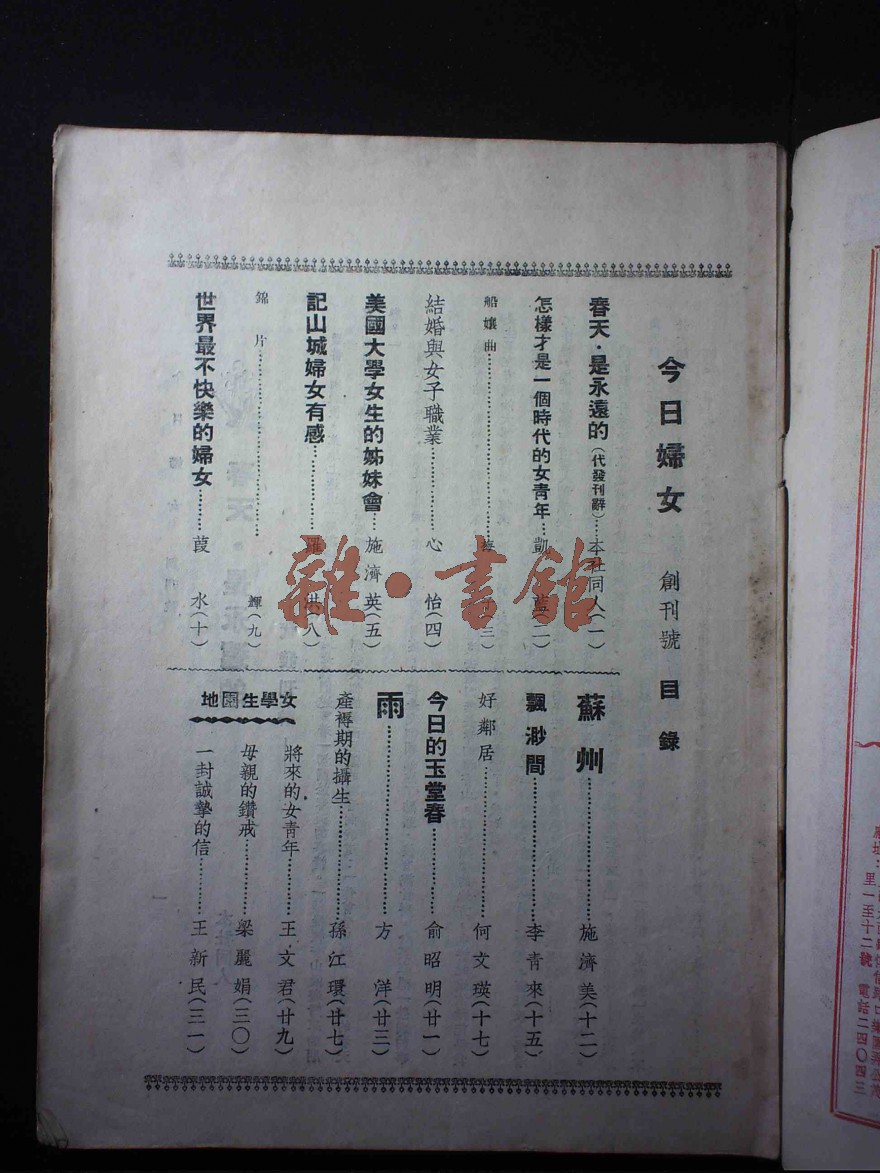 今日婦女 創刊號 目錄
春天·是永遠的(代發刊辭)……本社同人(一)
怎樣才是一個時代的女青年……凱
船孃曲……三)
結婚與女子職業……心怡(四)
美國大學女生的姊妹會……施濟英(五)
記山城婦女有感……羅洪(八)
錦片……輝(九)
世界最不快樂的婦女……葭水(十)
蘇州……施濟美(十二)
飄渺間……李青來(十五)
好鄰居……何文瑛(十七)
今日的玉堂春……俞昭明(廿一)
雨……方洋(廿三)
產褥期的攝生……孫江環(廿七)
女學生園地
將來的女青年……王文君(廿九)
母親的鑽戒……梁麗娟(三〇)
一封誠摯的信……王新民(三一)
雜·書館
里一至十二號 電話二四〇四三